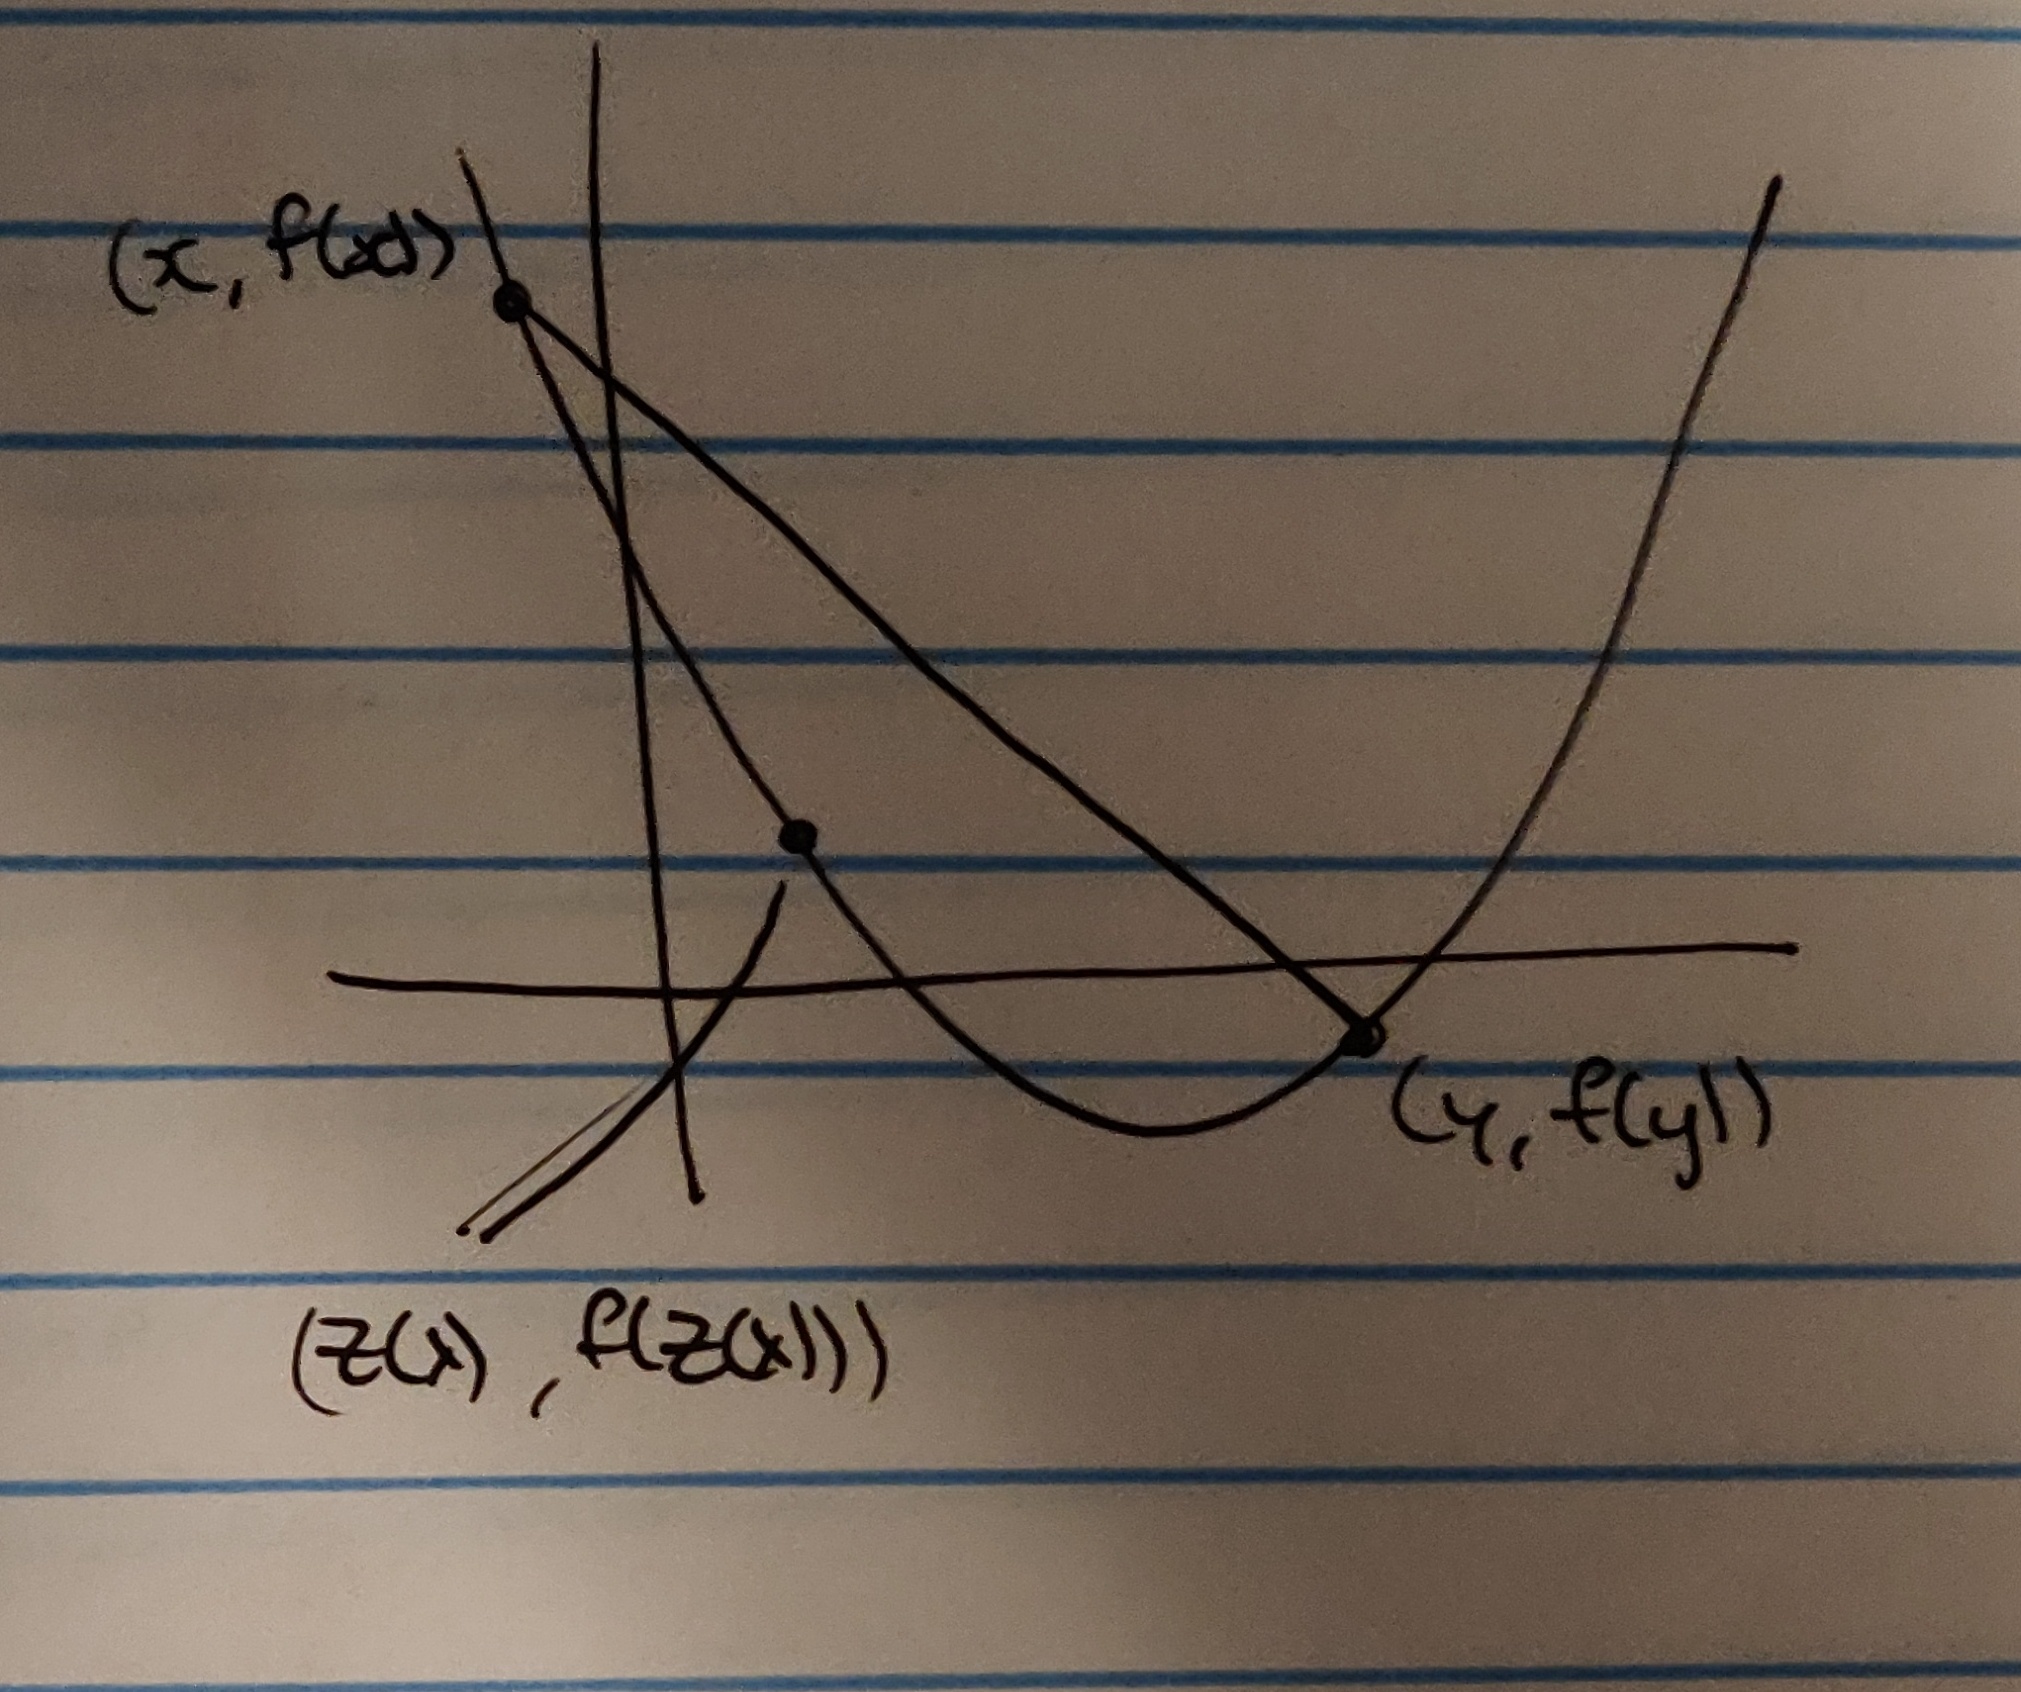 (x, f(x))
(y, f(y))
(z(x), f(z(x)))